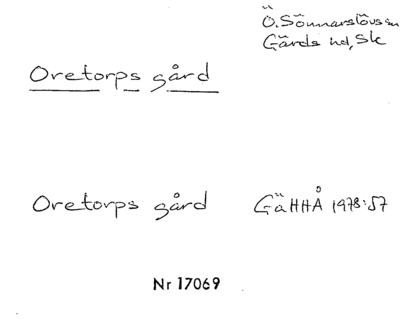 Ö. Sönnarslövs sn
Gärds hd, Sk
Oretorps gård
Oretorps gård GäHHÅ 1978:57
Nr 17069